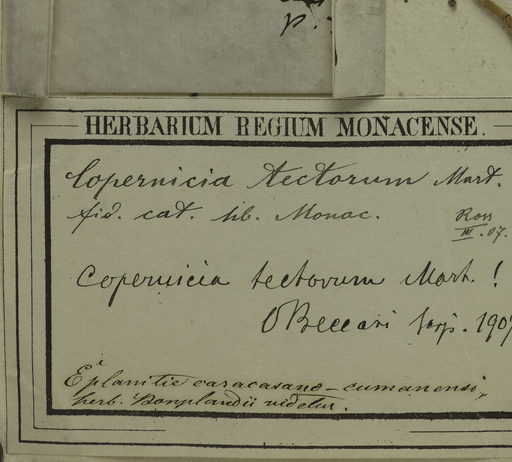 p.
HERBARIUM REGIUM MONACENSE.
Copernicia tectorum Mart.
fid. cat. hb. Monac.
Ross
III. 07.
Copernicia tectorum Mart. !
OBeccari 1907
E planitie caracasano-cumanensi,
herb. Bonplandii videtur.